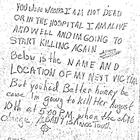 YOU WONDER I AM NOT DEAD
OR IN THE HOSPITAL I AM ALIVE
AND WELL AND IM GOING TO
START KILLING AGAIN
Below is the NAME AND
LOCATION OF MY NEXT VICTIM
But you had Better hurry be
cause I'm going to kill Her August
10th at 5:00 P.M. when the shift
change.